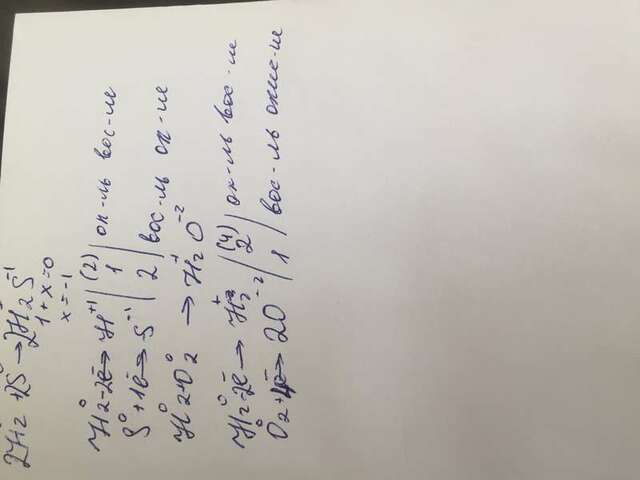 2H₂⁰ + 2S⁰ → 2H₂S⁻¹
1 + x = 0
x = -1
H₂⁰ - 2ē → H⁺¹ | (2) 1 | ок-ль вос-ие
S⁰ + 1ē → S⁻¹ | 2 | вос-ль ок-ие
H₂⁰ + O₂⁰ → H₂O⁻²
H₂⁰ - 2ē → | (4) 2 | ок-ль вос-ие
O₂⁰ + 4ē → 2O⁻² | 1 | вос-ль окис-ие